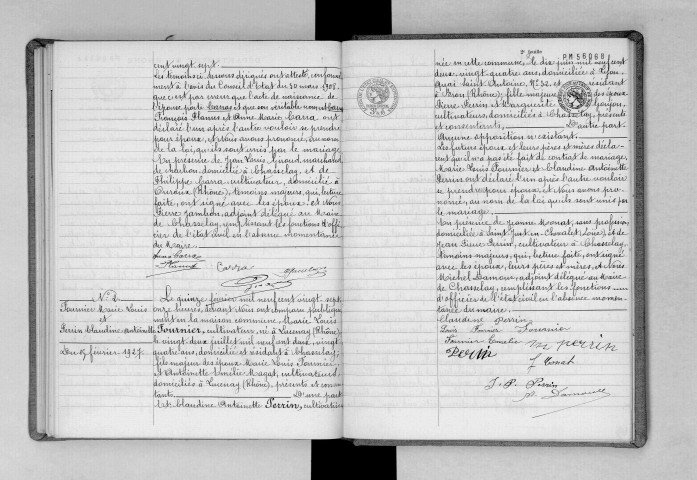 cent vingt sept.
Les témoins ci-dessous désignés ont attesté, conformé-
ment à l'avis du Conseil d'Etat du 30 mars 1908,
que c'est par erreur que l'acte de naissance de
l'épouse porte Carrag et que son véritable nom est Carra
François Planus et Anne Marie Carra ont
déclaré l'un après l'autre vouloir se prendre
pour époux, et Nous avons prononcé, au nom
de la loi, qu'ils sont unis par le mariage.
En présence de Jean Louis Giraud, marchand
de charbon, domicilié à Chasselay, et de
Philippe Carra, cultivateur, domicilié à
Ouroux (Rhône), témoins majeurs, qui, lecture
faite, ont signé avec les époux et Nous
Pierre Jambon, adjoint délégué au Maire
de Chasselay, remplissant les fonctions d'offi-
cier de l'état civil en l'absence momentanée
du Maire.
Anna Carra
Planus Carra
N° 2
Fournier Marie Louis
et
Perrin Claudine Antoinette
Du 15 février 1927.
Le quinze février mil neuf cent vingt sept,
onze heures, devant Nous ont comparu publique-
ment en la maison commune Marie Louis
Fournier, cultivateur, né à Lucenay (Rhône)
le vingt deux juillet mil neuf cent deux, vingt
quatre ans, domicilié et résidant à Chasselay;
fils majeur des époux Marie Louis Fournier
et Antoinette Emilie Magat, cultivateurs
domiciliés à Lucenay (Rhône), présents et consen-
tants. D'une part.
Et Claudine Antoinette Perrin, cultivatrice
2e feuillet
PM56060
née en cette commune le dix juin mil neuf cent
deux, vingt quatre ans, domiciliée à Lyon,
Quai Saint Antoine, N° 32, et résidant
à Bron (Rhône), fille majeure des époux
Pierre Perrin et Marguerite Goujon,
cultivateurs, domiciliés à Chasselay, présents
et consentants. D'autre part.
Aucune opposition n'existant.
Les futurs époux et leurs pères et mères décla-
rent qu'il n'a pas été fait de contrat de mariage.
Marie Louis Fournier et Claudine Antoinette
Perrin ont déclaré l'un après l'autre vouloir
se prendre pour époux, et Nous avons pro-
noncé, au nom de la loi, qu'ils sont unis par
le mariage.
En présence de Jeanne Monat, sans profession
domiciliée à Saint Just en Chevalet (Loire), et de
Jean Pierre Perrin, cultivateur à Chasselay,
témoins majeurs, qui, lecture faite, ont signé
avec les époux, leurs pères et mères, et Nous
Michel Damour, adjoint délégué au Maire
de Chasselay, remplissant les fonctions
d'officier de l'état civil en l'absence momen-
tanée du maire.
Claudine Perrin
Louis Fournier Fournier
Fournier Emilie m perrin
Perrin J Monat
J-P Perrin
Damour